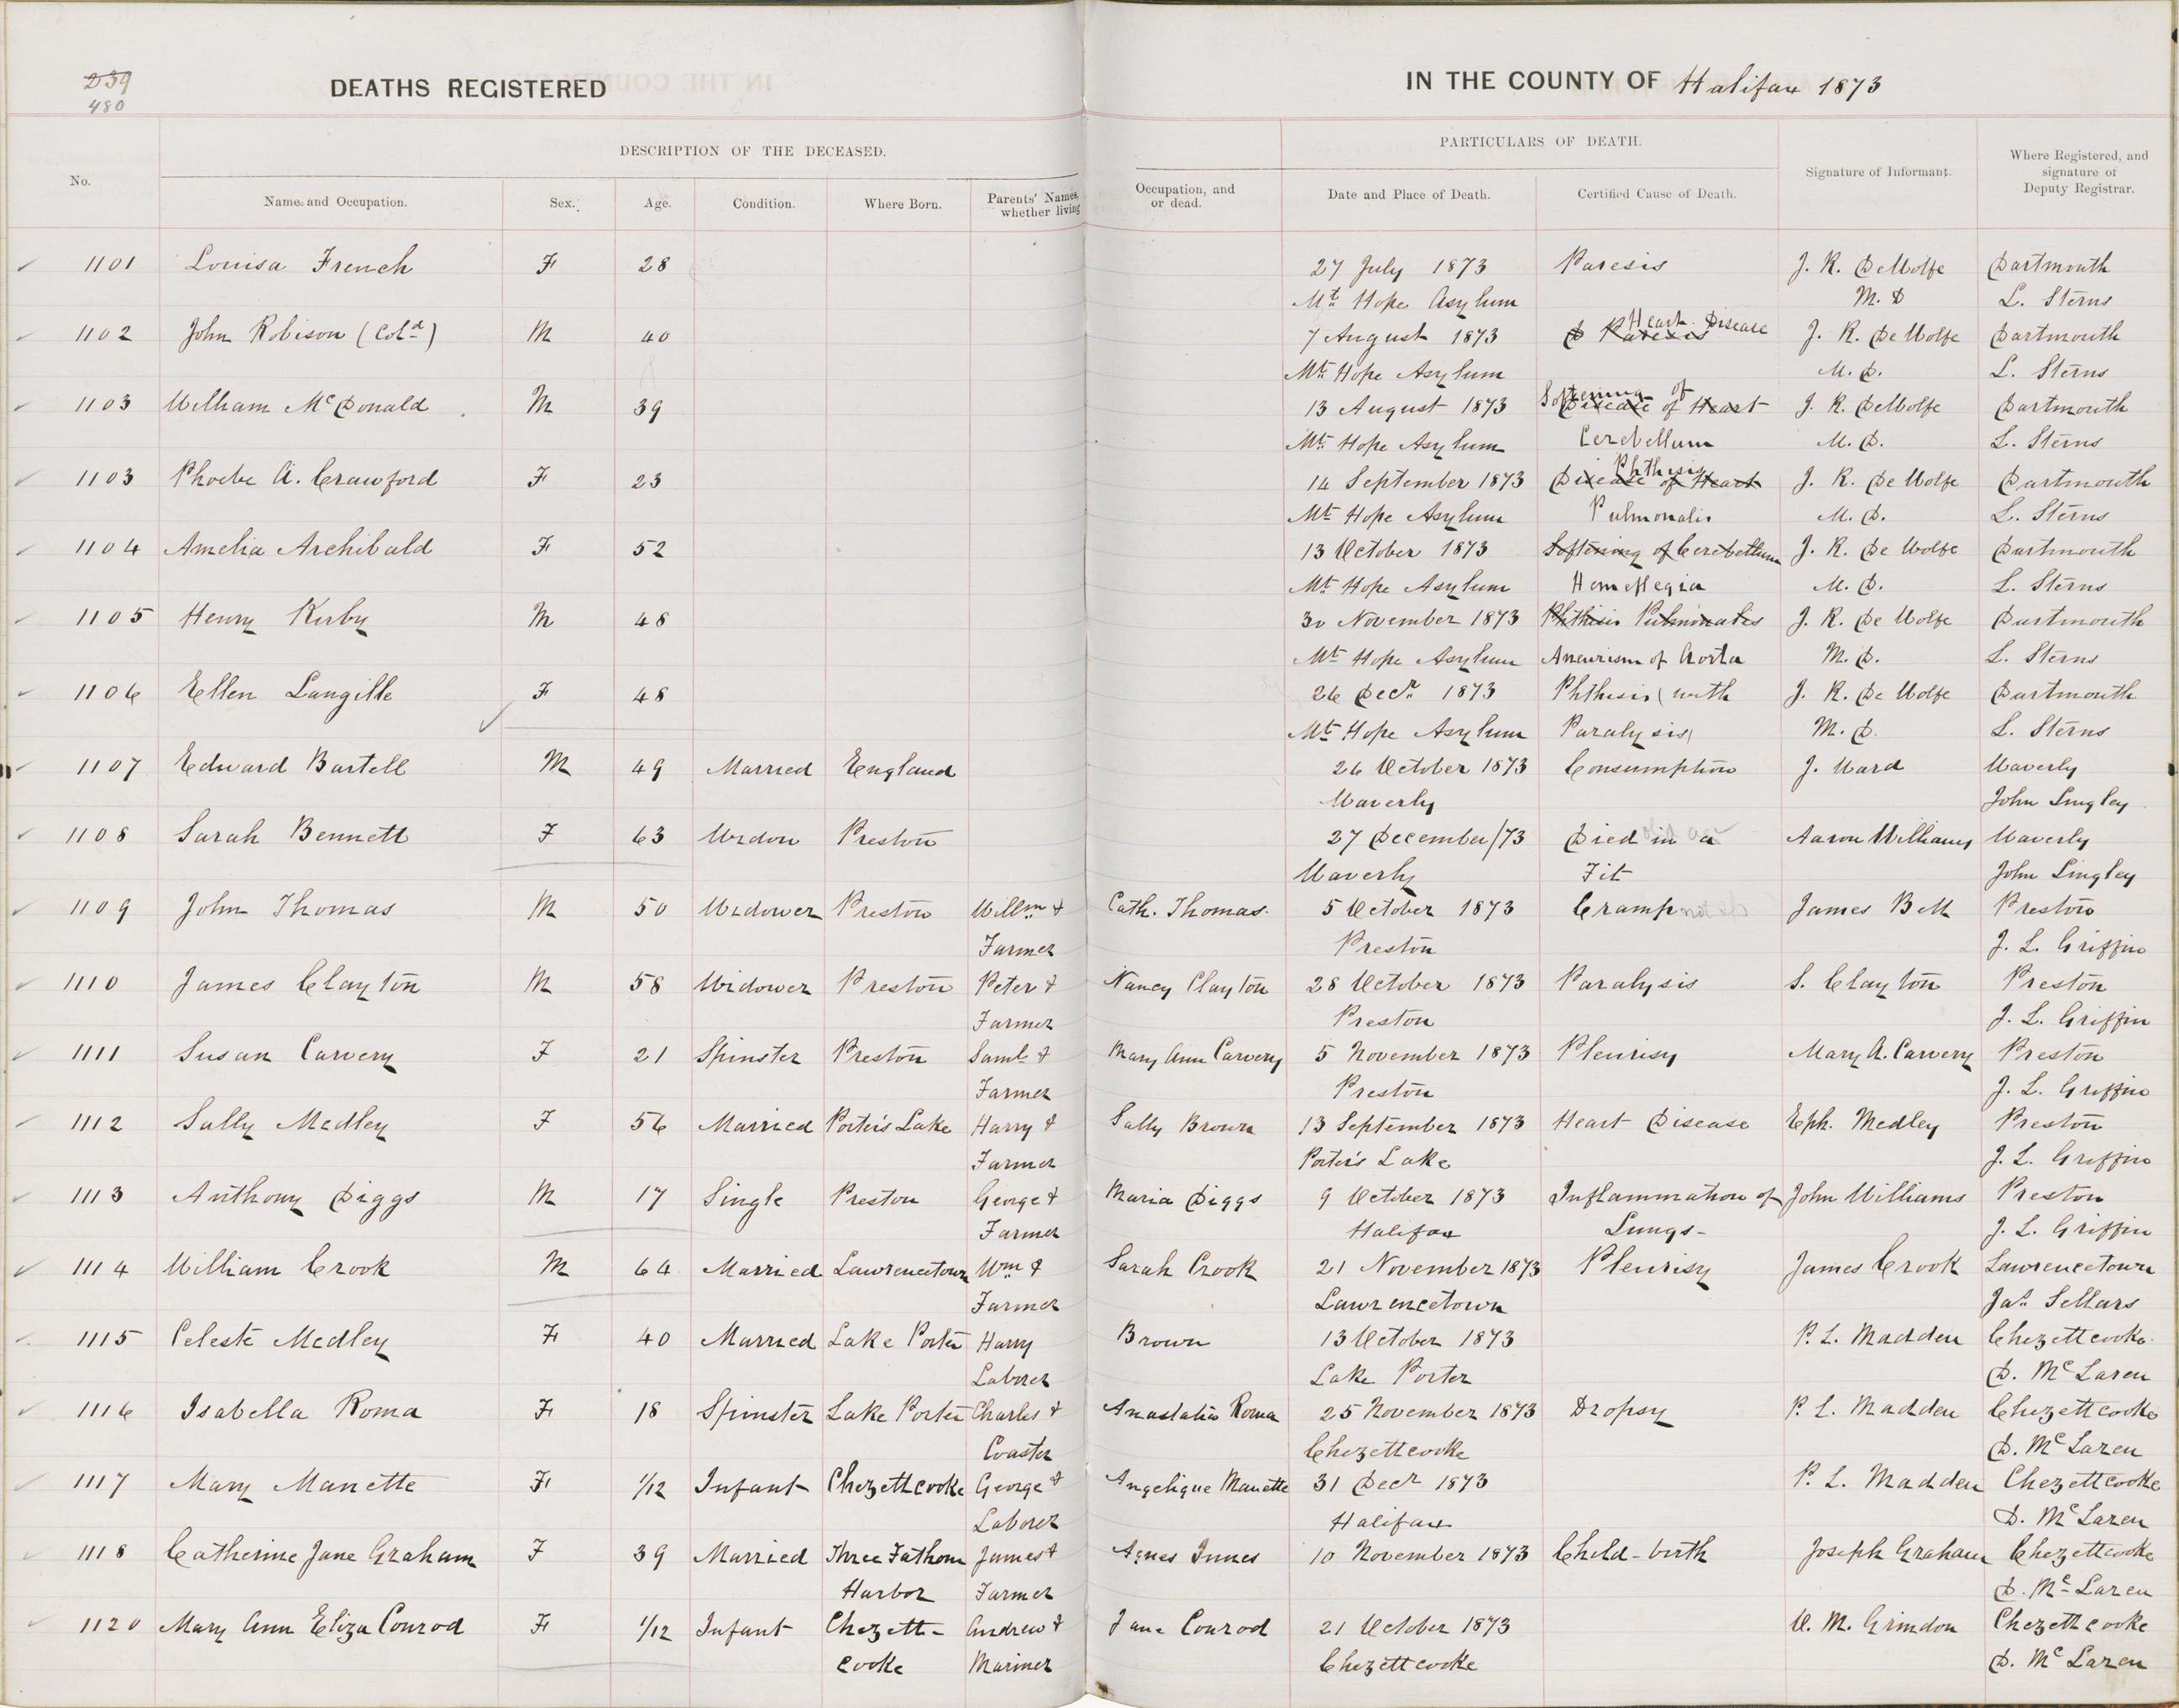 239
480
DEATHS REGISTERED IN THE COUNTY OF Halifax 1873
DESCRIPTION OF THE DECEASED. PARTICULARS OF DEATH.
No. Name and Occupation. Sex. Age. Condition. Where Born. Parents' Names, whether living Occupation, and or dead. Date and Place of Death. Certified Cause of Death. Signature of Informant. Where Registered, and signature of Deputy Registrar.
1101 Louisa French F 28 27 July 1873 Paresis J. R. DeWolfe Dartmouth
Mt Hope Asylum M. D L. Sterns
1102 John Robison (Cold) M 40 7 August 1873 D Paresis Heart Disease J. R. DeWolfe Dartmouth
Mt Hope Asylum M. D. L. Sterns
1103 William McDonald M 39 13 August 1873 Softening of Disease of Heart J. R. DeWolfe Dartmouth
Mt Hope Asylum Cerebellum M. D. L. Sterns
1103 Phoebe A. Crawford F 23 14 September 1873 Disease of Heart Phthisis J. R. DeWolfe Dartmouth
Mt Hope Asylum Pulmonalis M. D. L. Sterns
1104 Amelia Archibald F 52 13 October 1873 Softening of Cerebellum J. R. De Wolfe Dartmouth
Mt Hope Asylum Hemeplegia M. D. L. Sterns
1105 Henry Kirby M 48 30 November 1873 Phthisis Pulmonalis J. R. De Wolfe Dartmouth
Mt Hope Asylum Aneurism of Aorta M. D. L. Sterns
1106 Ellen Langille F 48 26 Decr 1873 Phthisis (with J. R. De Wolfe Dartmouth
Mt Hope Asylum Paralysis) M. D. L. Sterns
1107 Edward Bartell M 49 Married England 26 October 1873 Consumption J. Ward Waverly
Waverly John Lingley
1108 Sarah Bennett F 63 Widow Preston 27 December/73 Died in a Aaron Williams Waverly
Waverly Fit John Lingley
1109 John Thomas M 50 Widower Preston Willm & Cath. Thomas. 5 October 1873 Cramp James Bell Preston
Farmer Preston J. L. Griffin
1110 James Clayton M 58 Widower Preston Peter & Nancy Clayton 28 October 1873 Paralysis S. Clayton Preston
Farmer Preston J. L. Griffin
1111 Susan Carvery F 21 Spinster Preston Saml & Mary Ann Carvery 5 November 1873 Pleurisy Mary A. Carvery Preston
Farmer Preston J. L. Griffin
1112 Sally Medley F 56 Married Porter's Lake Harry & Sally Brown 13 September 1873 Heart Disease Eph. Medley Preston
Farmer Porter's Lake J. L. Griffin
1113 Anthony Diggs M 17 Single Preston George & Maria Diggs 9 October 1873 Inflammation of John Williams Preston
Farmer Halifax Lungs- J. L. Griffin
1114 William Crook M 64 Married Lawrencetown Wm & Sarah Crook 21 November 1873 Pleurisy James Crook Lawrencetown
Farmer Lawrencetown Jas. Sellars
1115 Celeste Medley F 40 Married Lake Porter Harry Brown 13 October 1873 P. L. Madden Chezettcooke
Laborer Lake Porter D. McLaren
1116 Isabella Roma F 18 Spinster Lake Porter Charles & Anastatia Roma 25 November 1873 Dropsy P. L. Madden Chezettcooke
Coaster Chezettcooke D. McLaren
1117 Mary Manette F 1/12 Infant Chezettcooke George & Angelique Manette 31 Decr 1873 P. L. Madden Chezettcooke
Laborer Halifax D. McLaren
1118 Catherine Jane Graham F 39 Married Three Fathom James & Agnes Innes 10 November 1873 Child-birth Joseph Graham Chezettcooke
Harbor Farmer D. McLaren
1120 Mary Ann Eliza Conrod F 1/12 Infant Chezett- Andrew & Jane Conrod 21 October 1873 W. M. Grindon Chezettcooke
cooke Mariner Chezettcooke D. McLaren